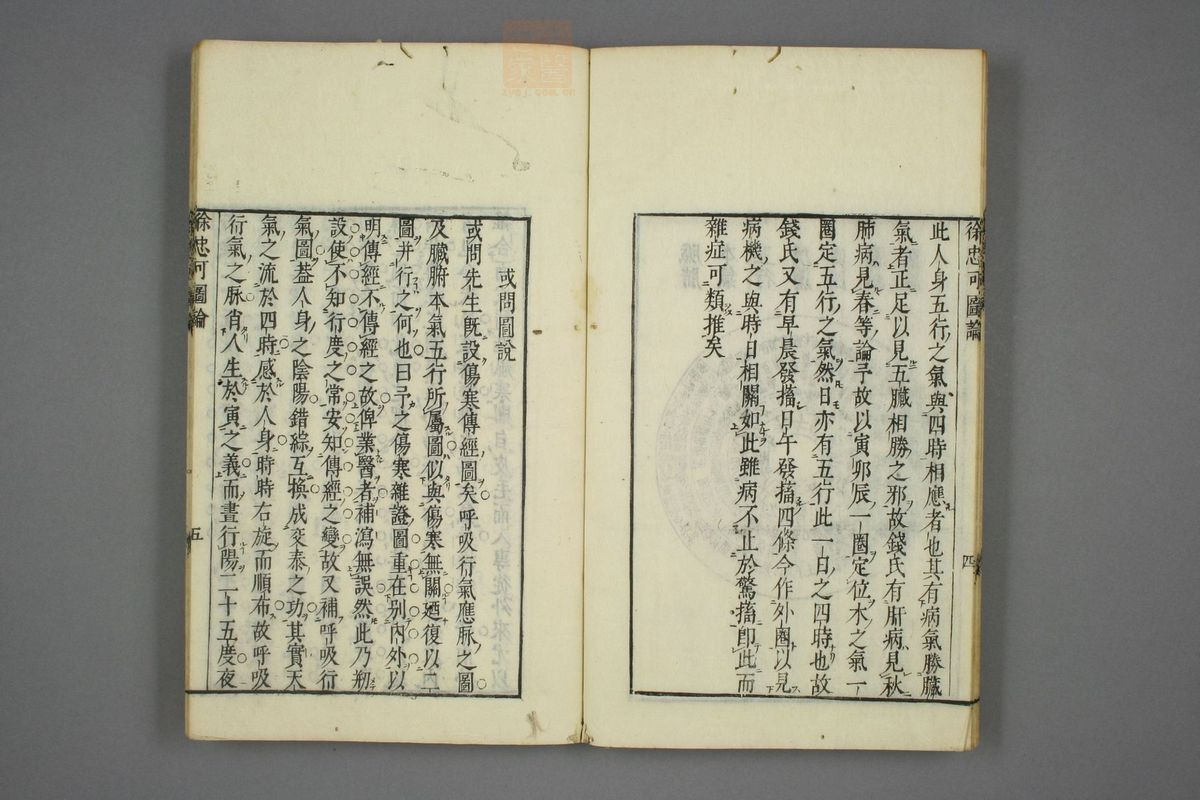 徐忠可圖論
四
此人身五行之氣與四時相應者也其有病氣勝臟
氣者正足以見五臟相勝之邪故錢氏有肝病見秋
肺病見春等論予故以寅卯辰一圈定位木之氣一
圈定五行之氣然日亦有五行此一日之四時也故
錢氏又有早晨發搐日午發搐四條今作外圈以見
病機之與時日相關如此雖病不止於驚搐即此而
雜症可類推矣
或問圖說
或問先生既設傷寒傳經圖矣呼吸行氣應脉之圖
及臟腑本氣五行所屬圖似與傷寒無關廼復以五
圖并行之何也曰予之傷寒雜證圖重在別內外以
明傳經不傳經之故俾業醫者補瀉無誤然此乃剏
設使不知行度之常安知傳經之變故又補呼吸行
氣圖葢人身之陰陽錯綜互換成交泰之功其實天
氣之流於四時感於人身時時右旋而順布故呼吸
行氣之脉肖人生於寅之義而晝行陽二十五度夜
徐忠可圖論
五